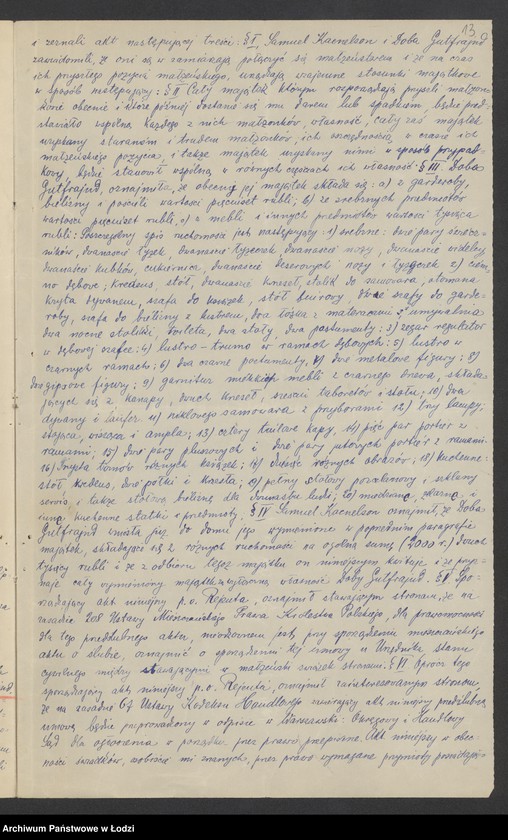 13
i zeznali akt następującej treści: § I, Samuel Kacnelson i Doba Gutfrajnd
zawiadomili, że oni są w zamiarach połączyć się małżeństwem i że na czas
ich przyszłego pożycia małżeńskiego, urządzają wzajemne stosunki majątkowe
w sposób następujący: § II Cały majątek którym rozporządzają przyszli małżon-
kowie obecnie i które później dostanie się mu darem lub spadkiem, będzie przed-
stawiało wspólną każdego z nich małżonków, własność, cały zaś majątek
uzyskany staraniem i trudem małżonków, ich oszczędnością w czasie ich
małżeńskiego pożycia, i także majątek uzyskany nimi w sposób przypad-
kowy, będzie stanowił wspólną w równych częściach ich własność. § III. Doba
Gutfrajnd oznajmiła, że obecny jej majątek składa się: a) z garderoby,
bielizny i pościeli wartości pięciuset rubli; b) ze srebrnych przedmiotów
wartości pięciuset rubli, c) z mebli i innych przedmiotów wartości tysiąca
rubli: Poszczególny spis ruchomości jest następujący: 1) srebrne: dwie pary świecz-
ników, dwanaście łyżek, dwanaście łyżeczek, dwanaście noży, dwanaście widelcy,
dwanaście kubków, cukiernica, dwanaście deserowych noży i łyżeczek 2) ciem-
no dębowe; kredens, stół, dwanaście krzeseł, stolik do samowara, otomana
kryta dywanem, szafa do książek, stół biurowy, dwie szafy do garde-
roby, szafa do bielizny z lustrem, dwa łóżka z materacami, umywalnia
dwa nocne stoliki, toaleta, dwa stoły, dwa postumenty; 3) zegar regulator
w dębowej szafce; 4) lustro-trumo w ramach dębowych; 5) lustro w
czarnych ramach; 6) dwa czarne postumenty, 7) dwie metalowe figury; 8)
dwie gipsowe figury; 9) garnitur miękkich mebli z czarnego drzewa, składa-
jących się z kanapy, dwóch krzeseł, sześciu taboretów i stołu; 10) dwa
dywany i laufer 11) niklowego samowara z przyborami 12) trzy lampy;
stojąca, wisząca i ampla; 13) cztery kapy, 14) pięć par portier z
ramami; 15) dwie pary pluszowych i dwie pary jutowych portier z ramami.
16) Trzysta tomów różnych książek; 17) dziesięć różnych obrazów; 18) kuchenne:
stół, kredens, dwie półki i krzesła; 19) pełny stołowy porcelanowy i szklany
serwis i także stołowa bielizna dla dwunastu ludzi; 20) miedziane, żelazne i
inne kuchenne statki i przedmioty. § IV Samuel Kacnelson oznajmił, że Doba
Gutfrajnd wniosła już do domu jego wymienione w poprzednim paragrafie
majątek, składające się z różnych ruchomości na ogólną sumę (2000 r.) dwóch
tysięcy rubli i że z odbioru tegoż majątku on niniejszym kwituje i że przy-
znaje cały wymieniony majątek wyłączną własność Doby Gutfrajnd. § V Spo-
rządzający akt niniejszy p.o. Rejenta, oznajmił stawającym stronom, że na
zasadzie 208 Ustawy Cywilnego Prawa Królestwa Polskiego, dla prawomocności
dla tego przedślubnego aktu, nieodzownem jest, przy sporządzeniu
aktu o ślubie, oznajmić o sporządzeniu tej umowy u Urzędnika stanu
cywilnego między stawającymi w małżeński związek stronami. § VI Oprócz tego
sporządzający akt niniejszy p.o. Rejenta, oznajmił zainteresowanym stronom,
że na zasadzie 67 Ustawy Kodeksu Handlowego niniejszy akt niniejszy przedślubną
umową będzie poprowadzony w odpisie w Warszawski: Okręgowy i Handlowy
Sąd dla ogłoszenia w porządku, przez prawo, przepisanem. Akt niniejszy w obec-
ności świadków, osobiście mi znanych, przez prawo wymagane przymioty posiadających
Archiwum Państwowe w Łodzi